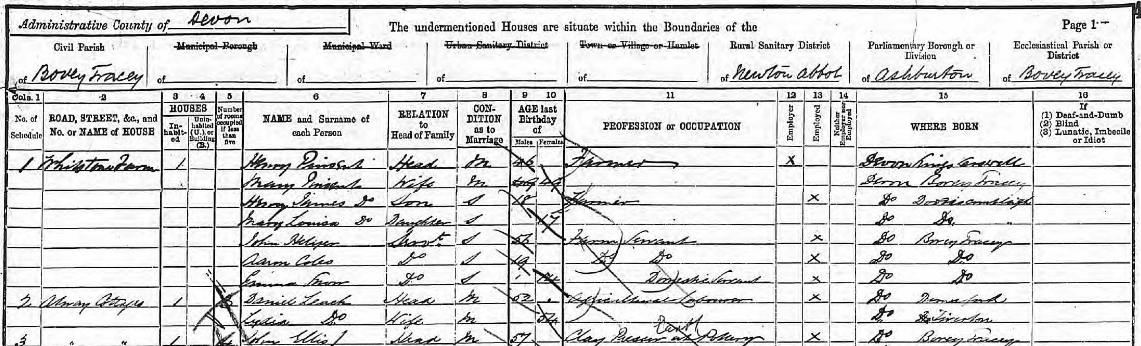 Administrative County of Devon
The undermentioned Houses are situate within the Boundaries of the
Page 1
Civil Parish Municipal Borough Municipal Ward Urban Sanitary District Town or Village or Hamlet Rural Sanitary District Parliamentary Borough or Division Ecclesiastical Parish or District
of Bovey Tracey of of of of of Newton Abbot of Ashburton of Bovey Tracey
Cols. 1 2 3 4 5 6 7 8 9 10 11 12 13 14 15 16
No. of Schedule ROAD, STREET, &c., and No. or NAME of HOUSE HOUSES Inhabited Uninhabited (U.) or Building (B.) Number of rooms occupied if less than five NAME and Surname of each Person RELATION to Head of Family CONDITION as to Marriage AGE last Birthday of Males Females PROFESSION or OCCUPATION Employer Employed Neither Employer nor Employed WHERE BORN If (1) Deaf-and-Dumb (2) Blind (3) Lunatic, Imbecile or Idiot
1 Whitstone Farm 1 Henry Head M 46 Farmer x Devon Kings Carswell
Mary Wife M 49 Devon Bovey Tracey
Henry James Do Son S 18 Farmer x Do
Mary Louisa Do Daughter S 17 Do Do
John S 56 Farm Servant x Do Bovey Tracey
Aaron Coles Do S 19 Do Do x Do Do
Emma Do S Domestic Servant x Do Do
2 1 Daniel Leach Head M 52 Agricultural Labourer x Do
Lydia Do Wife M 54 Do Tiverton
3 " " 1 Wm Ellis Head M 57 Clay Presser at Pottery x Do Bovey Tracey